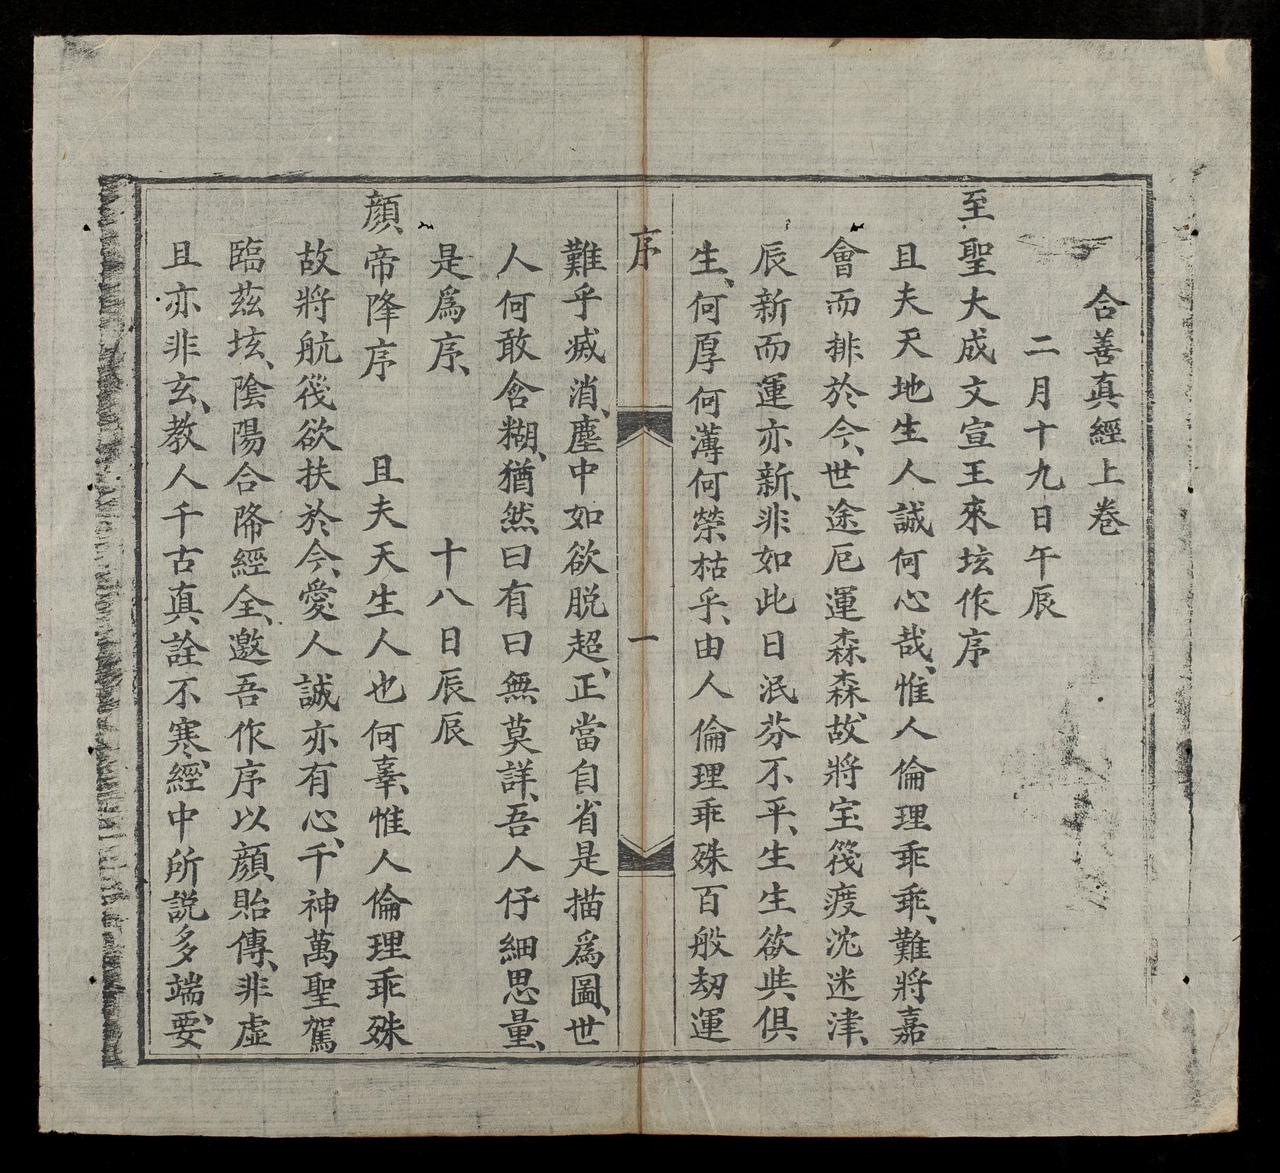 合善真經上卷
二月十九日午辰
至聖大成文宣王來坛作序
且夫天地生人誠何心哉、惟人倫理乖乖、難將嘉
會而排於今、世途厄運森森、故將宝筏渡沈迷津、
辰新而運亦新、非如此日泯芬不平、生生欲與俱
生、何厚何薄何荣枯乎、由人倫理乖殊百般刼運
序
一
難乎滅消、塵中如欲脱超、正當自省是描為圖、世
人何敢含糊、猶然曰有曰無莫詳、吾人仔細思量、
是為序、 十八日辰辰
顔帝降序 且夫天生人也何辜、惟人倫理乖殊
故將航筏欲扶於今、愛人誠亦有心、千神萬聖駕
臨茲坛、陰陽合降經全、邀吾作序以顔貽傳、非虛
且亦非玄、教人千古真詮不寒、經中所説多端、要